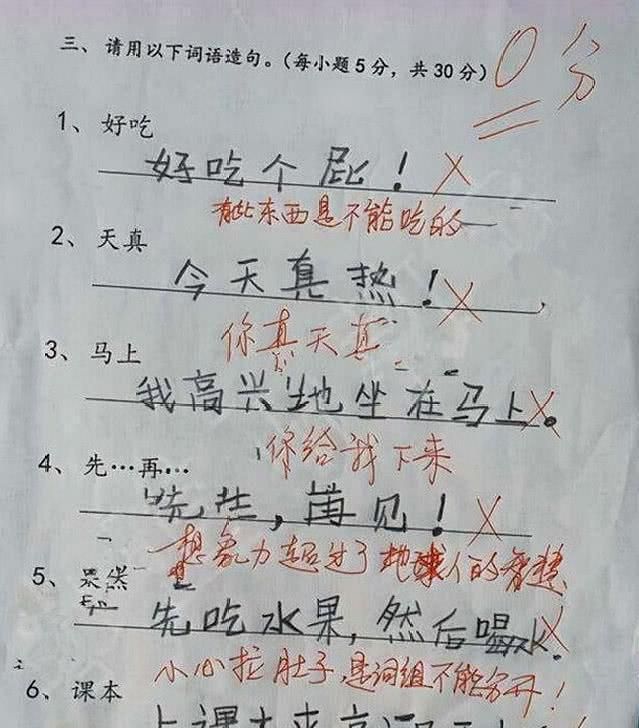 三、请用以下词语造句。（每小题5分，共30分）
0分
1、好吃
好吃个屁！
有些东西是不能吃的
2、天真
今天真热！
你真天真
3、马上
我高兴地坐在马上。
你给我下来
4、先…再…
先生，再见！
想象力超过了地球人的智慧
5、果然
先吃水果，然后喝水。
小心拉肚子，是词组不能分开！
6、课本
上课